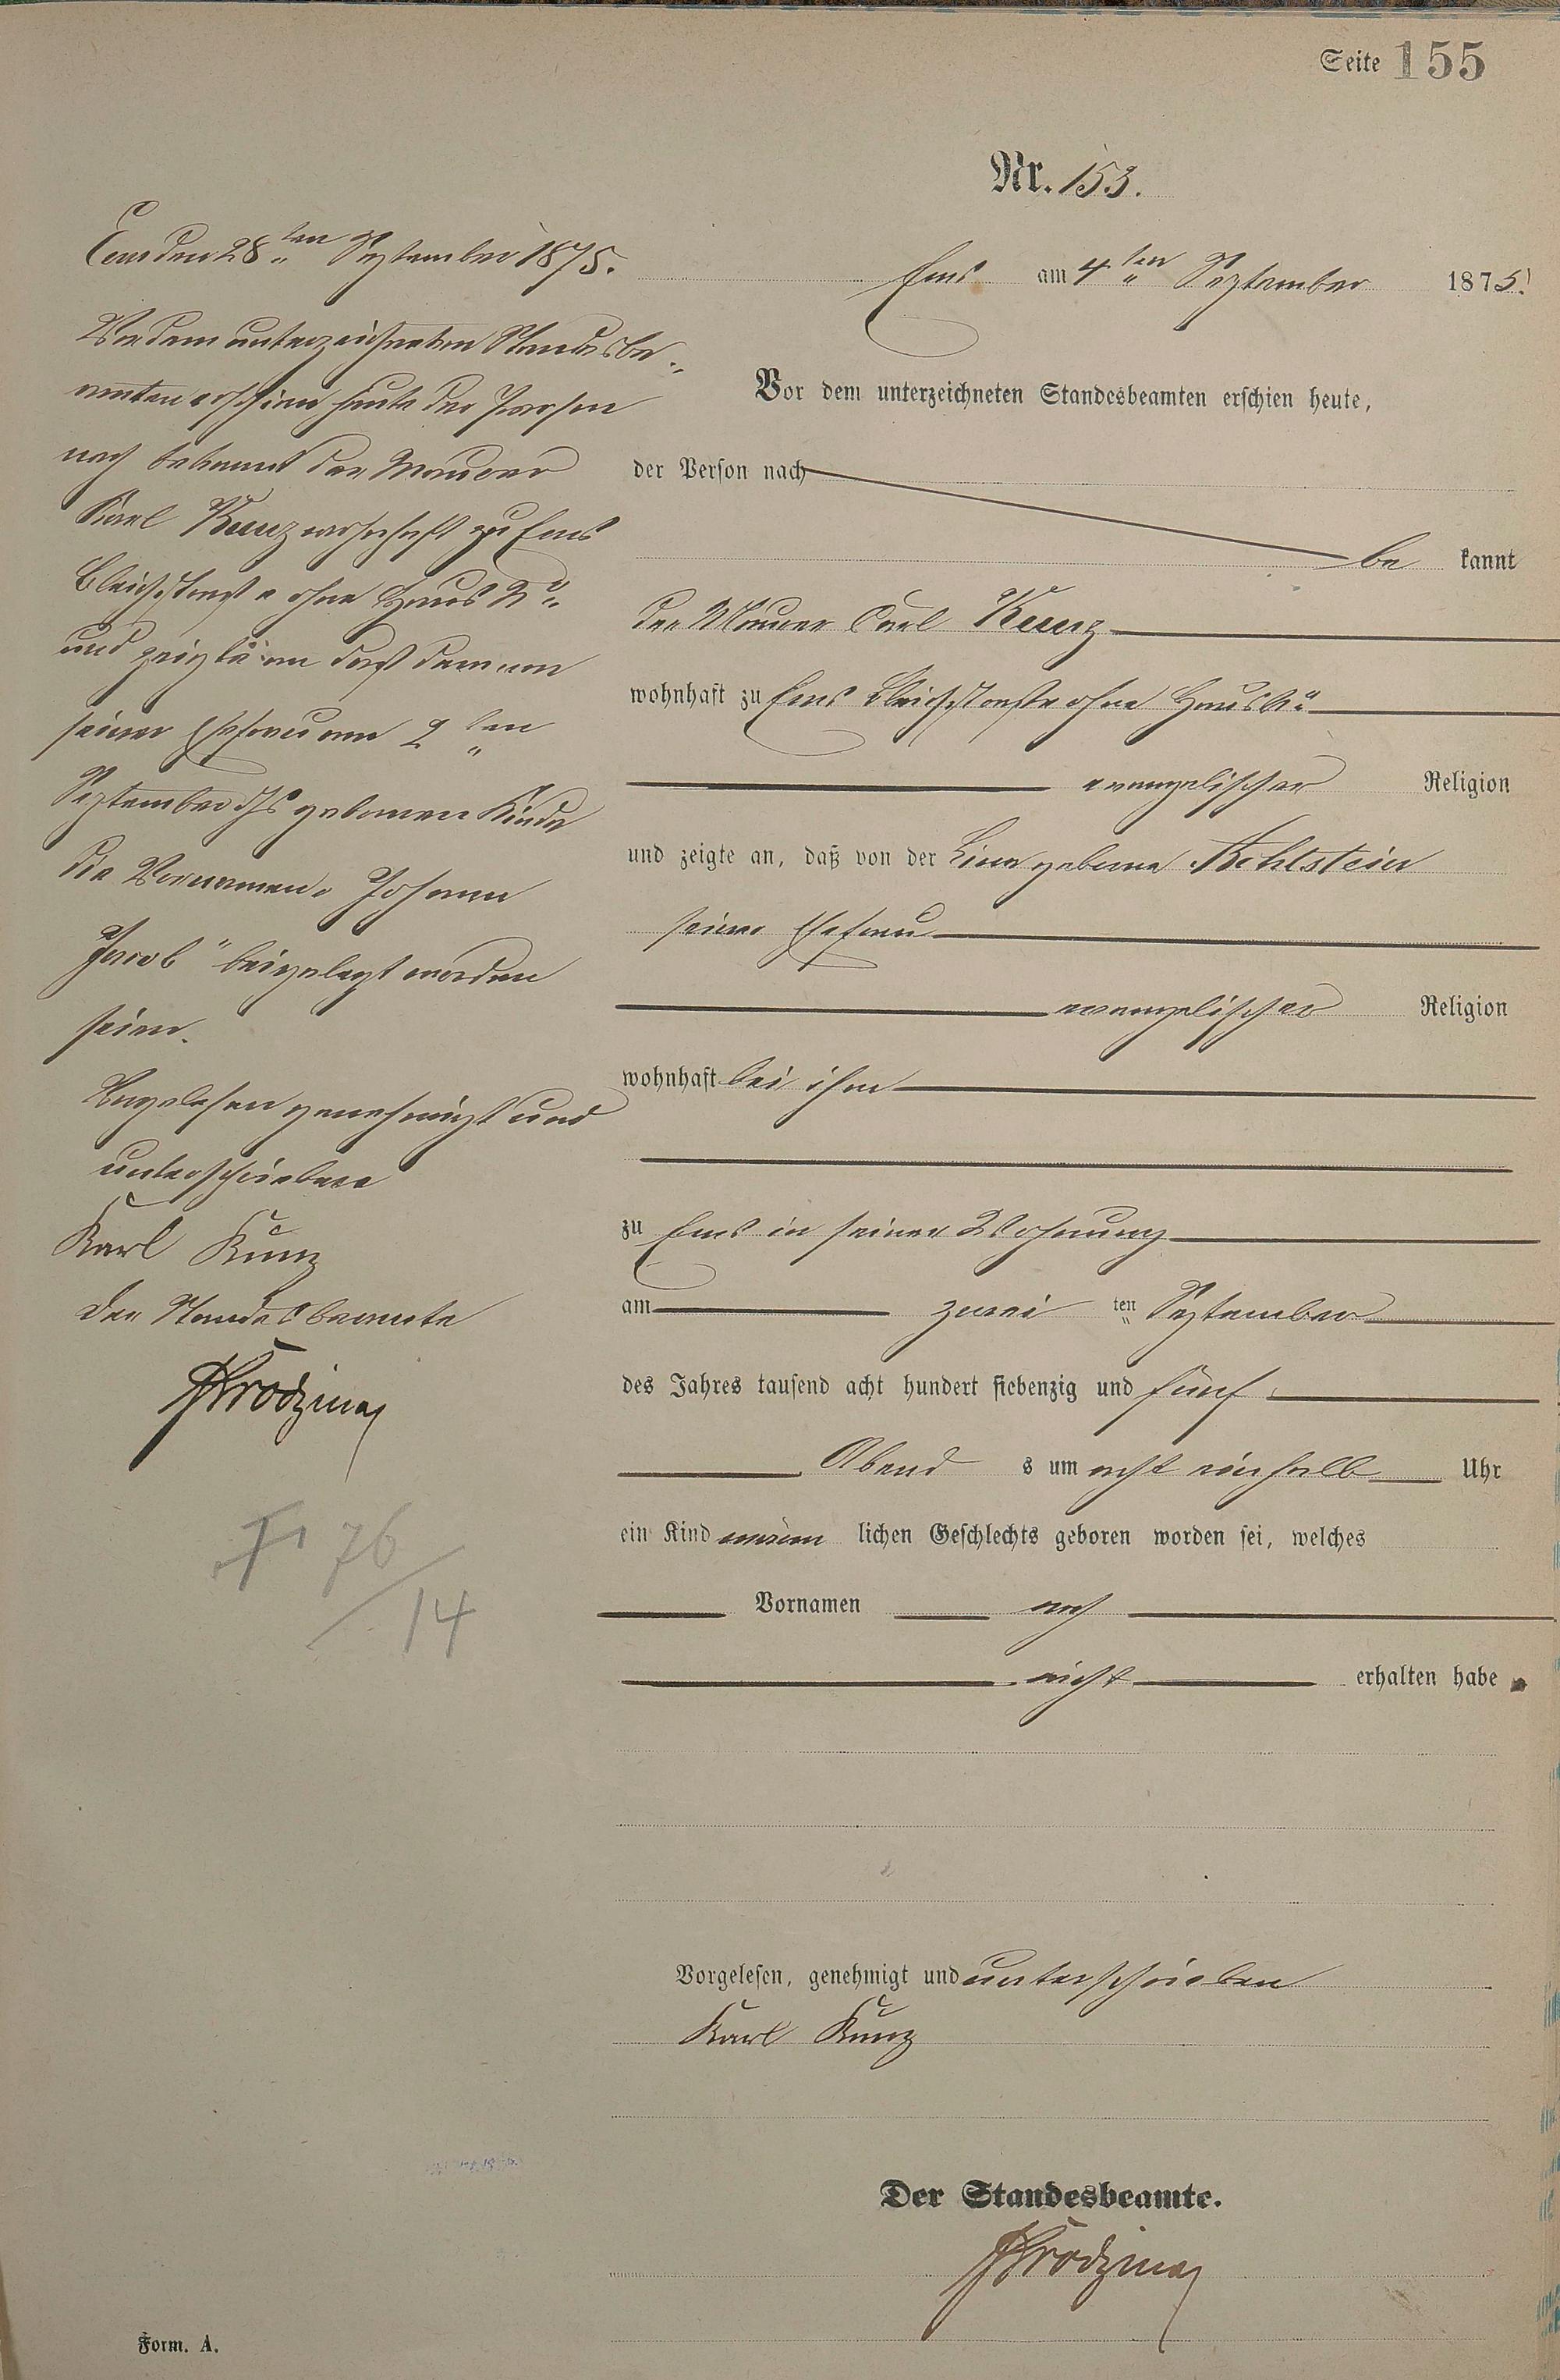 Seite 155
Nr. 153.
Ems den 28ten September 1875.
Vor dem unterzeichneten Standesbe-
amten erschien heute der Person
nach bekannt der Maurer
Karl Kunz wohnhaft zu Ems
Bleichstraße ohne Haus No
und zeigte an daß dem von
seiner Ehefrau am 2ten
September ds geborenen Kinde
die Vornamen „Johann
Jacob" beigelegt worden
seien.
Vorgelesen genehmigt und
unterschrieben
Karl Kunz
Der Standesbeamte
† 76/14
Ems am 4ten September 1875.
Vor dem unterzeichneten Standesbeamten erschien heute,
der Person nach
be kannt
der Maurer Carl Kunz
wohnhaft zu Ems Bleichstraße ohne Haus No
evangelischer Religion
und zeigte an, daß von der Lina geborne Kehlstein
seiner Ehefrau
evangelischer Religion
wohnhaft bei ihm
zu Ems in seiner Wohnung
am zwei ten September
des Jahres tausend acht hundert siebenzig und fünf
Abend s um acht ein halb Uhr
ein Kind männ lichen Geschlechts geboren worden sei, welches
Vornamen noch
nicht erhalten habe
Vorgelesen, genehmigt und unterschrieben
Karl Kunz
Der Standesbeamte.
Form. A.